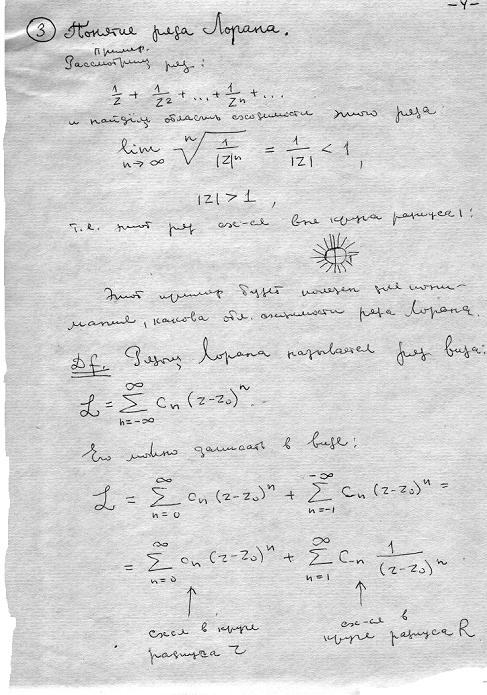 -4-
③ Понятие ряда Лорана.
Пример.
Рассмотрим ряд:
1/z + 1/z² + ... + 1/zⁿ + ...
и найдём область сходимости этого ряда:
lim n→∞ ⁿ√(1/|z|ⁿ) = 1/|z| < 1,
|z| > 1,
т.е. этот ряд сх-ся вне круга радиуса 1:
Этот пример будет полезен для пони-
мания, какова обл. сходимости ряда Лорана.
Df. Рядом Лорана называется ряд вида:
ℒ = ∑ n=-∞ ∞ cₙ (z-z₀)ⁿ.
Его можно записать в виде:
ℒ = ∑ n=0 ∞ cₙ (z-z₀)ⁿ + ∑ n=-1 -∞ cₙ (z-z₀)ⁿ =
= ∑ n=0 ∞ cₙ (z-z₀)ⁿ + ∑ n=1 ∞ c₋ₙ 1/(z-z₀)ⁿ
сх-ся в круге
радиуса r
сх-ся в
круге радиуса R